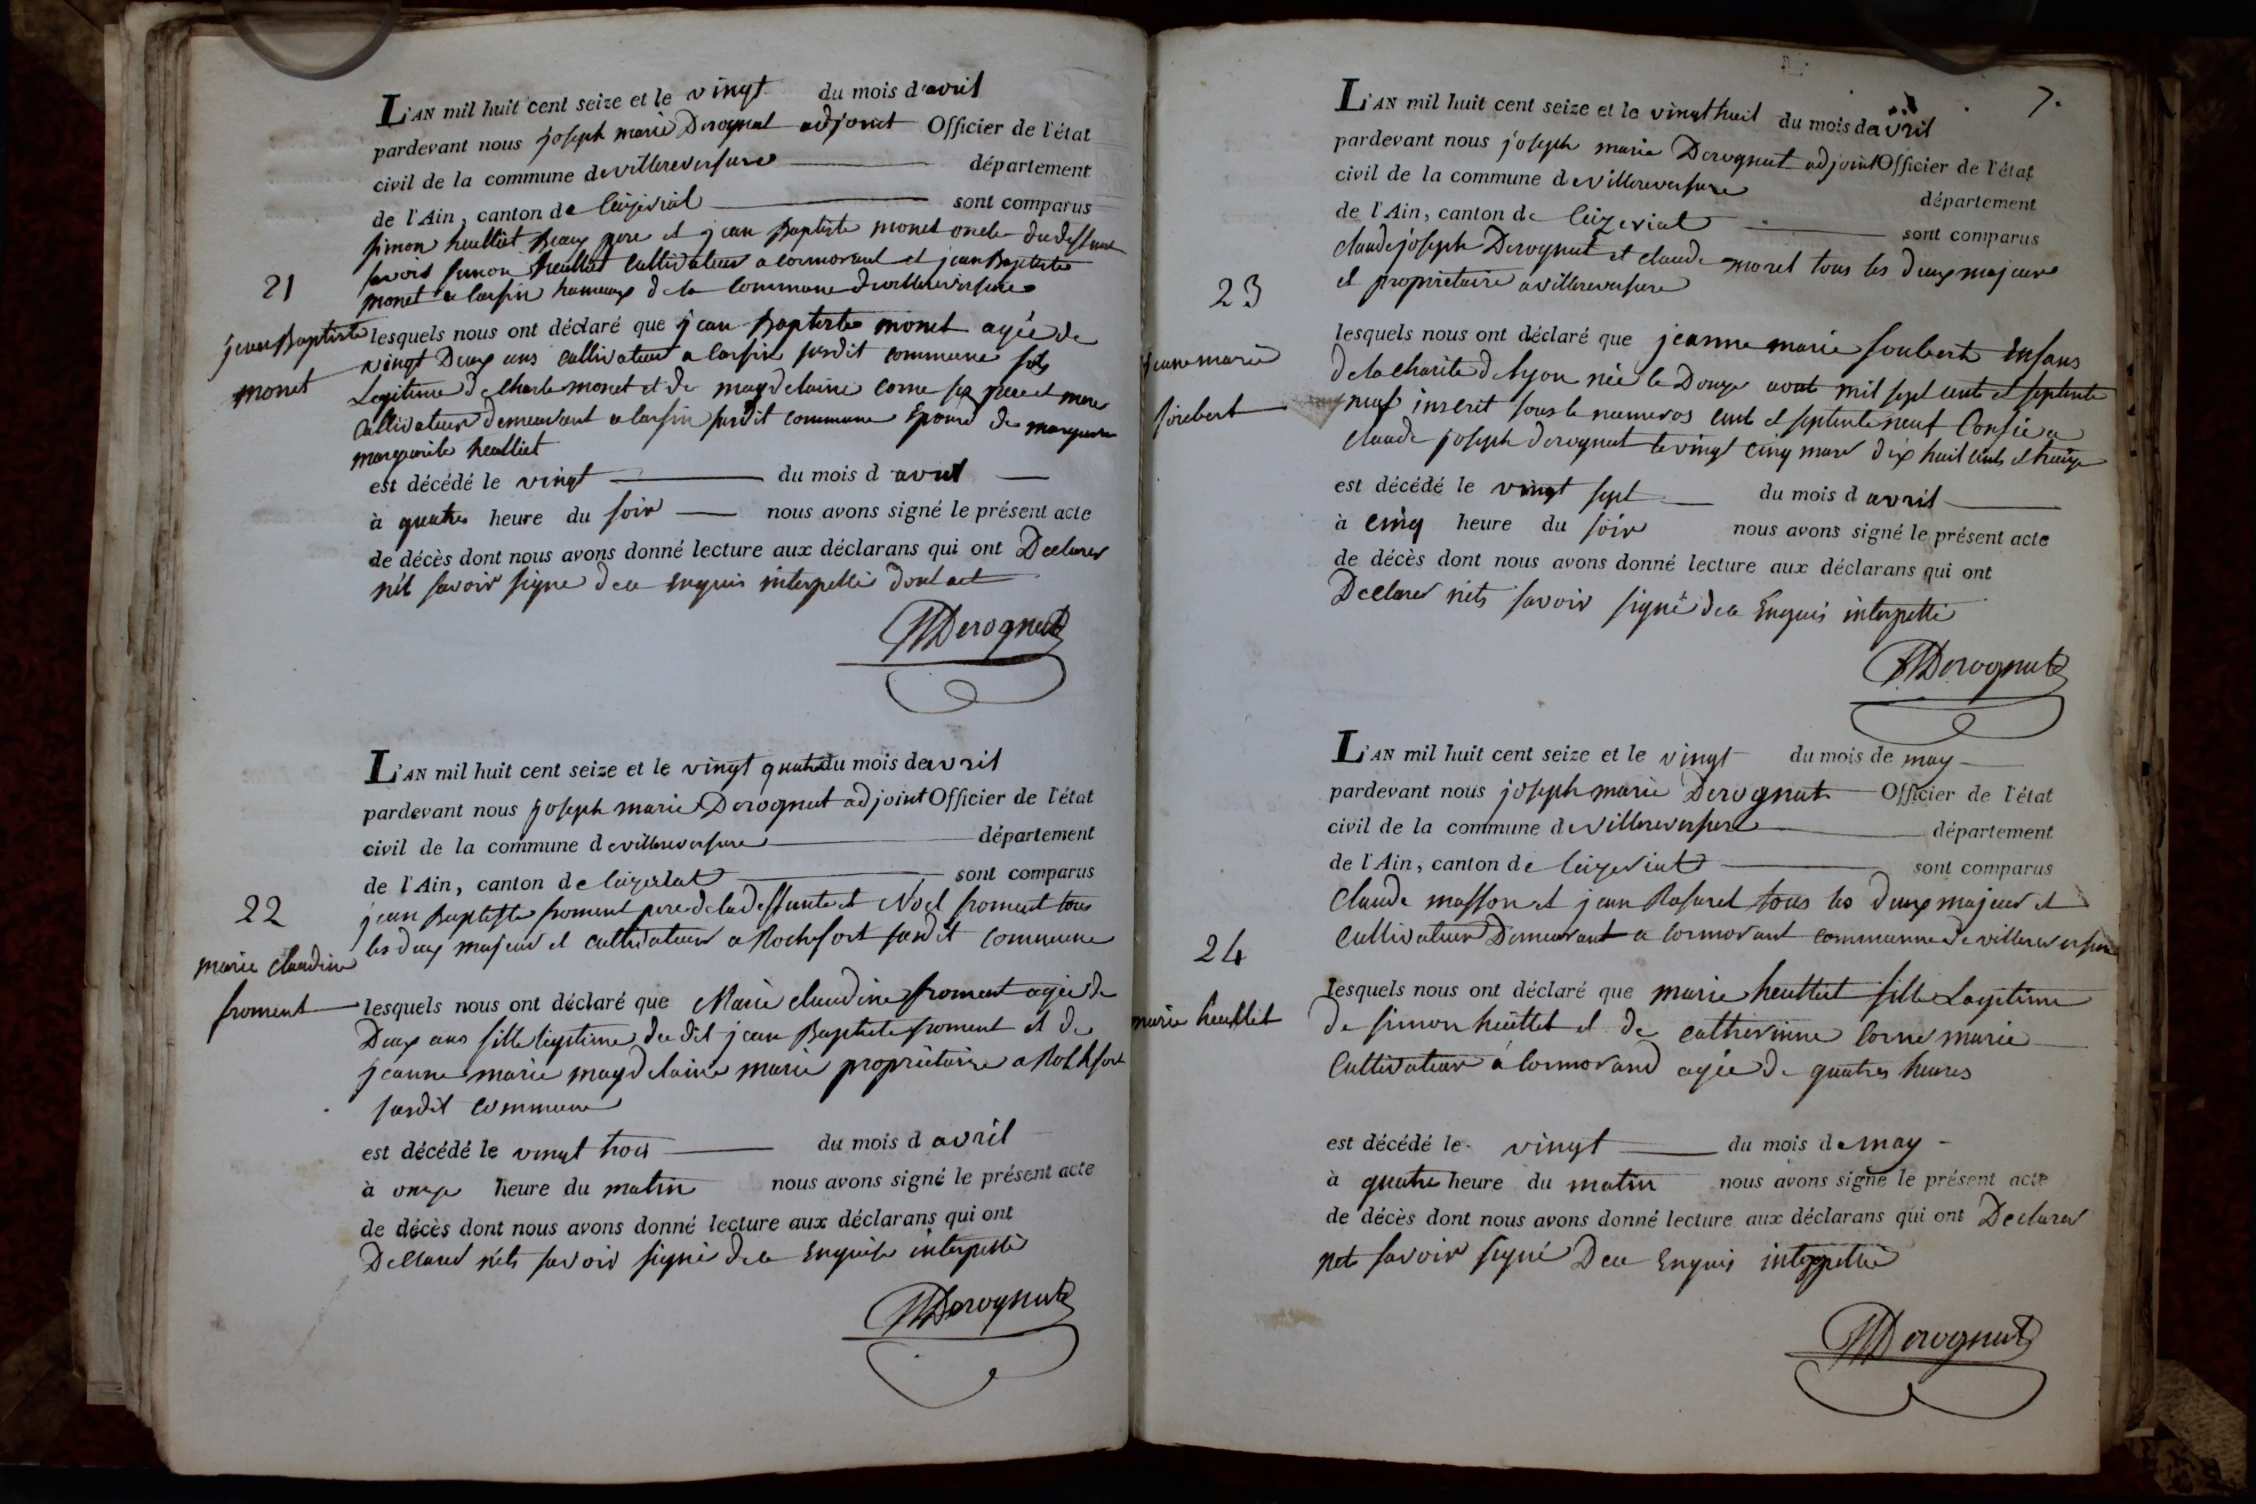 L'AN mil huit cent seize et le vingt du mois d'avril
pardevant nous joseph marie Derognat adjoint Officier de l'état
civil de la commune de villereversure département
de l'Ain, canton de Ceizeriat sont comparus
simon heullet Beaux pere et jean Baptiste monet oncle du deffunt
savoir simon heullet Cultivateur a cormorant et jean Baptiste
21
monet a hameaux de la Commune de villereversure
jean Baptiste
lesquels nous ont déclaré que jean Baptiste monet agée de
vingt Deux ans cultivateur a susdit commune fils
monet
Legitime de Charle monet et de magdelaine corne ses pere et mere
Cultivateur demeurant a susdit commune Epoux de
marguerite heulliet
est décédé le vingt du mois d avril
à quatres heure du soir nous avons signé le présent acte
de décès dont nous avons donné lecture aux déclarans qui ont Declarer
nêt savoir signe dece Enquis interpellé dont act
JMDerognat
L'AN mil huit cent seize et le vingt quatre du mois de avril
pardevant nous joseph marie Derognat adjoint Officier de l'état
civil de la commune de villereversure département
de l'Ain, canton de Ceizeriat sont comparus
22
jean Baptiste froment pere de la deffunte et Noel froment tous
les deux majeur et cultivateur a Rochefort susdit commune
marie claudine
froment
lesquels nous ont déclaré que Marie claudine froment agée de
Deux ans fille legitime du dit jean Baptiste froment et de
jeanne marie magdelaine marie propriétaire a Rochefort
susdit commune
est décédé le vingt trois du mois d avril
à onze heure du matin nous avons signé le présent acte
de décès dont nous avons donné lecture aux déclarans qui ont
Declarer néts savoir signé dece Enquise interpellé
JMDerognat
7.
L'AN mil huit cent seize et le vingt huit du mois de avril
pardevant nous joseph marie Derognat adjoint Officier de l'état
civil de la commune de villereversure département
de l'Ain, canton de Ceizeriat sont comparus
claude joseph Derognat et claude moret tous les deux majeurs
23
et propriétaire a villereversure
jeanne marie
lesquels nous ont déclaré que jeanne marie Enfans
de la charite de lyon née le Douze aout mil sept cents et septente
neuf inscrit sous le numeros cent et septente neuf Confié a
claude joseph derognat le vingt cinq mars dix huit cents et treize
est décédé le vingt sept du mois d avril
à cinq heure du soir nous avons signé le présent acte
de décès dont nous avons donné lecture aux déclarans qui ont
Declarer néts savoir signé dece Enquis interpellé
JMDerognat
L'AN mil huit cent seize et le vingt du mois de may
pardevant nous joseph marie Derognat Officier de l'état
civil de la commune de villereversure département
de l'Ain, canton de Ceizeriat sont comparus
Claude masson et jean tous les deux majeur et
24
Cultivateur Demeurant a cormorant commune de villereversure
marie heullet
lesquels nous ont déclaré que marie heullet fille Legitime
de simon heullet et de catherinne corne marie
Cultivateur a Cormorand agée de quatres heures
est décédé le vingt du mois de may
à quatre heure du matin nous avons signé le présent acte
de décès dont nous avons donné lecture aux déclarans qui ont Declarer
nets savoir signé Dece Enquis interpellé
JMDerognat